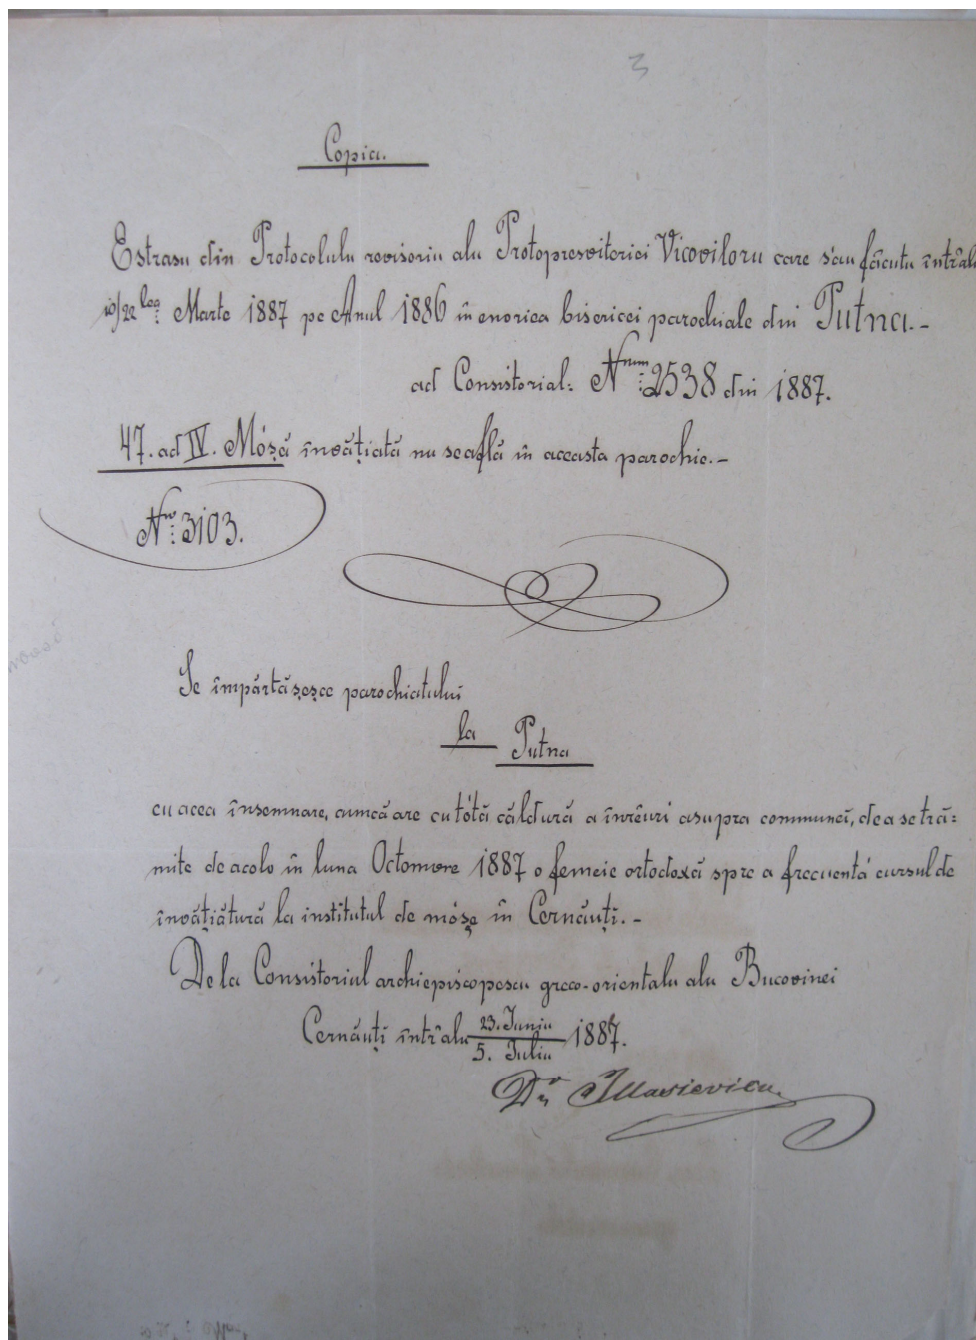 3
Copia.
Estrasu din Protocolulu revisoriu alu Protopresviteriei Vicoviloru care s'au făcutu într'alu
10/22 lea Marte 1887 pe Anul 1886 în enoriea bisericei parochiale din Putna.-
ad Consistorial: Nrum: 2538 din 1887.
47. ad IV. Móșă învățiată nu se află în aceasta parochie.-
Nro: 3103.
Se împărtășesce parochiatului
la Putna
cu acea însemnare, cumcă are cu tótă căldură a înrêuri asupra communei, de a se tră=
mite de acolo în luna Octomvre 1887 o femeie ortodoxă spre a frecuentá cursul de
învățiătură la institutul de móșe în Cernăuți.-
De la Consistoriul archiepiscopescu greco-orientalu alu Bucovinei
Cernăuți într'alu 23. Juniu / 5. Juliu 1887.